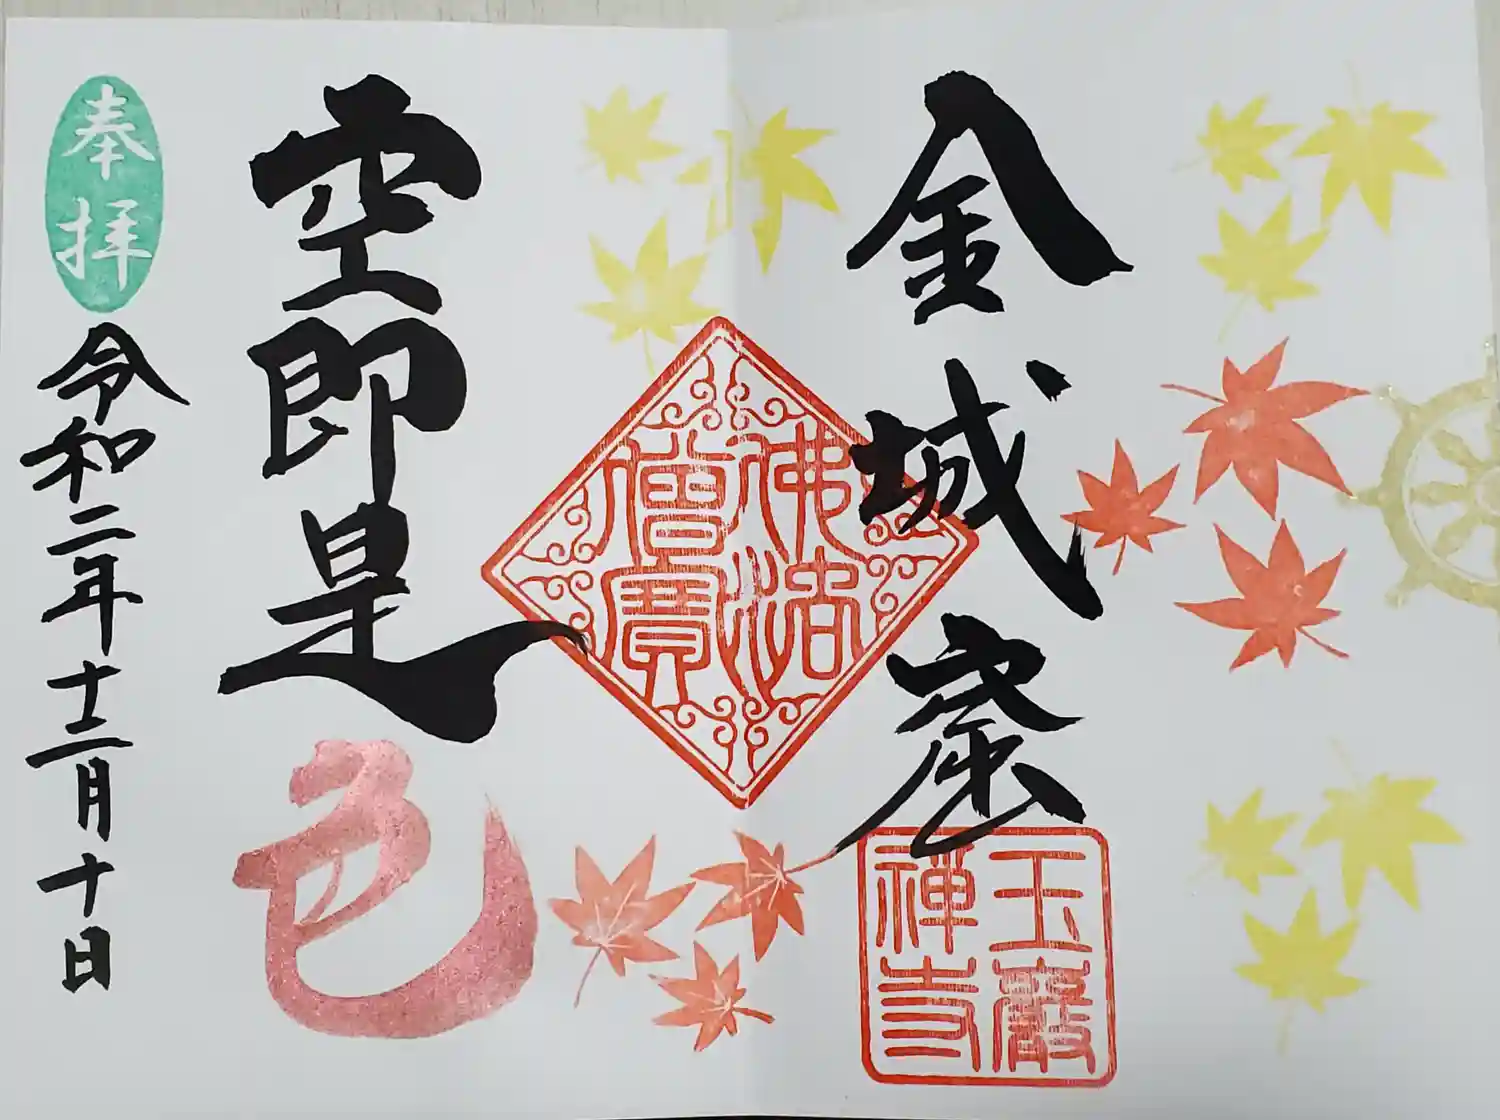 金城
佛法
僧寶
玉巖
禪寺
空即是色
奉拝
令和二年十二月十日